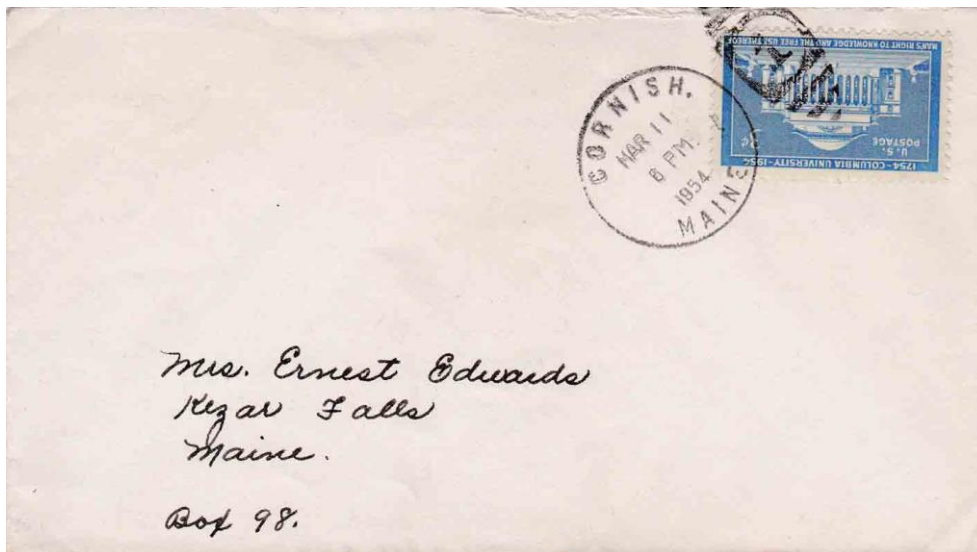 CORNISH.
MAR 11
6 PM
1954
MAINE
1
MAN'S RIGHT TO KNOWLEDGE AND THE FREE USE THEREOF
U.S.
POSTAGE
3¢
1754-COLUMBIA UNIVERSITY-1954
Mrs. Ernest Edwards
Kezar Falls
Maine.
Box 98.